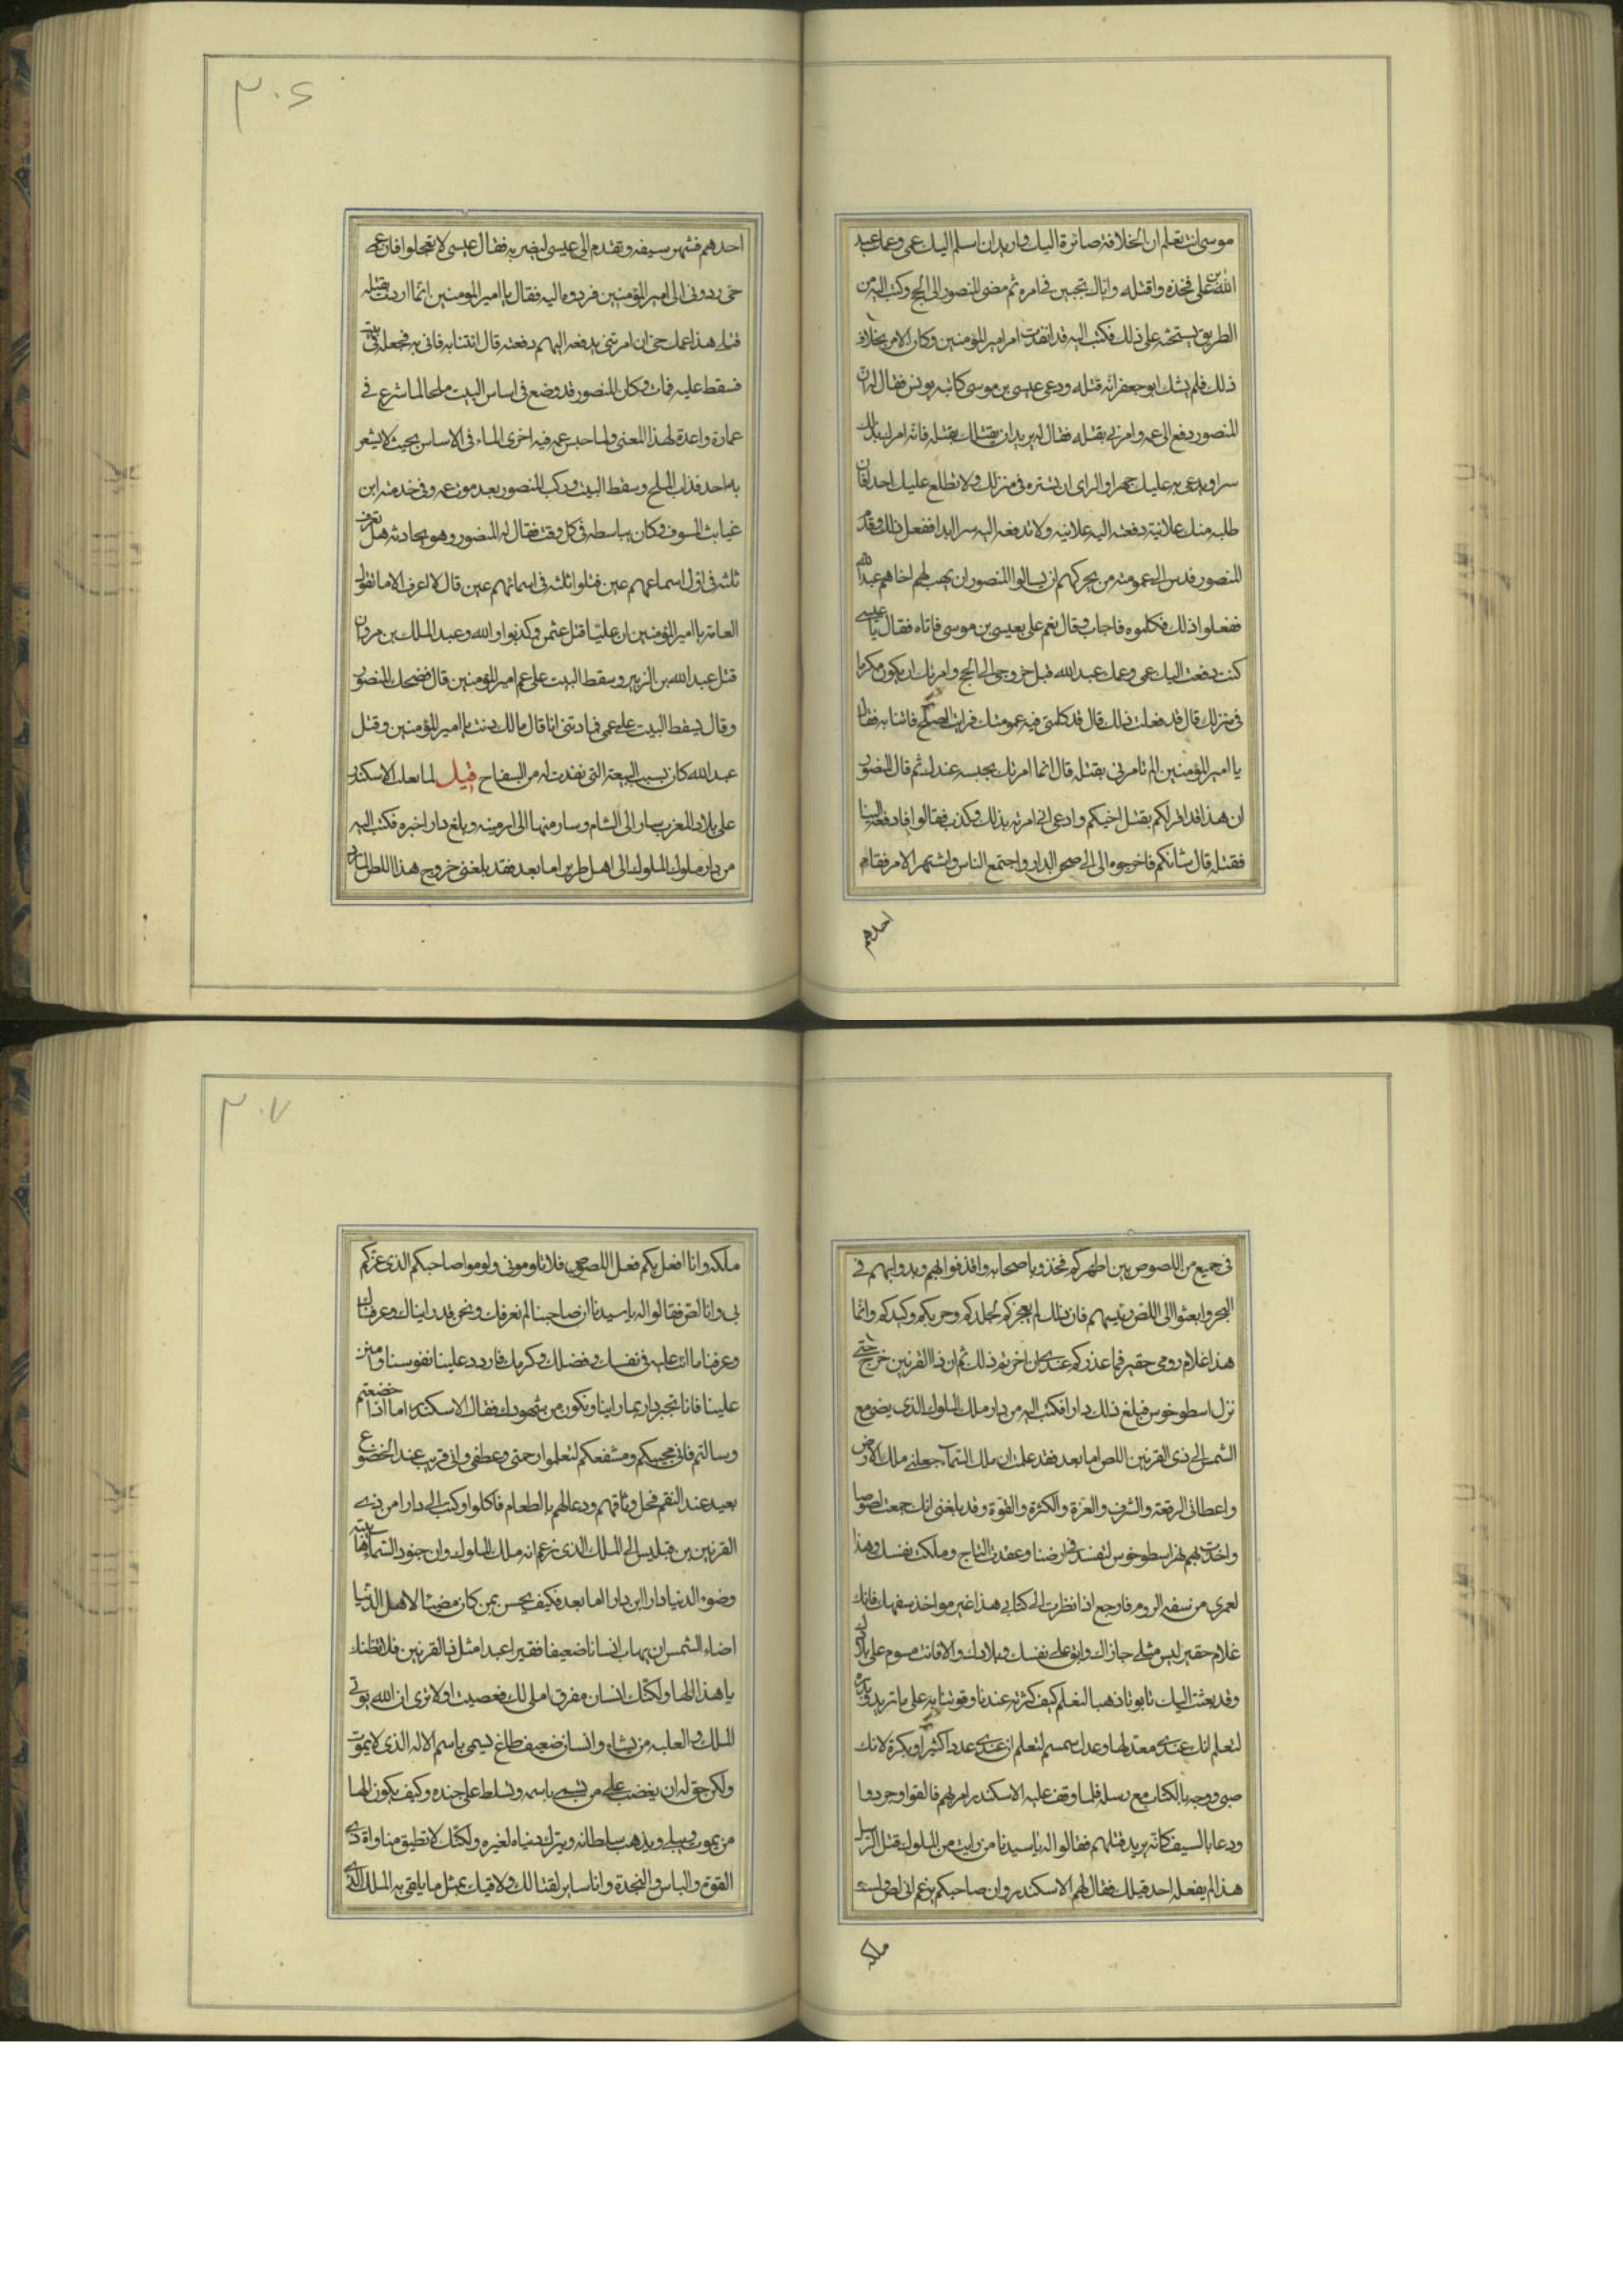 موسى انت تعلم ان الخلافة صائرة اليك واريد ان اسلم اليك عمى وعمك عبد
الله بن على فخذه واقتله واياك تجبن فى امره ثم مضى المنصور الى الحج وكتب اليه من
الطريق يستحثه على ذلك فكتب اليه قد انفذت امر امير المؤمنين وكان الامر بخلاف
ذلك فلم يشك ابو جعفر انه قتله ودعى عيسى بن موسى كاتبه يونس فقال له ان
المنصور دفع الى عمه وامرنى بقتله فقال له يريد ان يقتلك بقتله فانه امرك بذلك
سرا ويدعى به عليك جهرا والراى ان تستره فى منزلك ولا تطلع عليك احدا فان
طلبه منك علانية دفعته اليه علانيه ولا تدفعه اليه سرا ابدا ففعل ذلك وقدم
المنصور فدس الى عمومته من يحركهم ان يسالوا المنصور ان يهب لهم اخاهم عبد الله
ففعلوا ذلك فكلموه فاجاب وقال نعم على بعيسى بن موسى فاتاه فقال يا عيسى
كنت دفعت اليك عمى وعمك عبد الله قبل خروجى الى الحج وامرتك ان يكون مكرما
فى منزلك قال قد فعلت ذلك قال قد كلمنى فيه عمومتك فرايت الصلح فاتنا به فقال
يا امير المؤمنين الم تامرنى بقتله قال انما امرتك بحبسه عندك ثم قال المنصور
ان هذا قد اقر لكم بقتل اخيكم وادعى انى امرته بذلك وكذب فقالوا فادفعه الينا
فقتله قال شانكم فاخرجوه الى الى صحن الدار واجتمع الناس واشتهر الامر فقام
احدهم
٣٠٤
احدهم فشهر سيفه وتقدم الى عيسى ليضربه فقال عيسى لا تعجلوا فان عمى
حى ردونى الى امير المؤمنين فردوه اليه فقال يا امير المؤمنين انما اردت بقتله
قتلى هذا عمك حى ان امرتنى بدفعه اليهم دفعته قال ائتنا به فاتى به فجعله فى بيت
فسقط عليه فمات وكان المنصور قد وضع فى اساس البيت ملحا لما شرع فى
عمارة واعدة لهذا المعنى ولما حبس عمه فيه اجرى الماء فى الاساس بحيث لا يشعر
به احد فذاب الملح وسقط البيت وركب المنصور بعد موت عمه وفى خدمته ابن
عياش المسوف وكان يباسطه فى كل وقت فقال له المنصور وهو يحادثه هل تعرف
ثلثه فى اول اسماءهم عين قتلوا ثلثه فى اسمائهم عين قال لا اعرف الا ما تقول
العامة يا امير المؤمنين ان عليا قتل عثمن وكذبوا والله وعبد الملك بن مروان
قتل عبد الله بن الزبير وسقط البيت على عم امير المؤمنين قال فضحك المنصور
وقال يسقط البيت على عمى فما ذنبى انا قال مالك ذنب يا امير المؤمنين وقتل
عبد الله كان بسبب البيعة التى نفذت له من السفاح قيل لما ملك الاسكندر
على بلاد المغرب سار الى الشام وسار منها الى ارمينه وبلغ دار اخبره فكتب اليه
من دار ملوك الملوك الى اهل طرير اما بعد فقد بلغنى خروج هذا اللص
فى جميع من اللصوص بين اظهركم فخذوا اصحابه واقذفوا بهم وبدوابهم فى
البحر وابعثوا الى اللص رئيسهم فان ذلك لم يعجزكم لجلدكم وحربكم وكيدكم وانما
هذا غلام رومى حقير فما عذركم عندى ان اخرتم ذلك ثم ان ذا القرنين خرج حتى
نزل اسطوخوس فبلغ ذلك دارا فكتب اليه من دار ملك الملوك الذى يضئ مع
الشمس الى ذى القرنين اللص اما بعد فقد علمت ان ملك السماء جعلنى ملك الارض
واعطانى الرفعة والشرف والعزة والكثرة والقوة وقد بلغنى انك جمعت لصوصا
واخذت بهم نهر اسطوخوس لتفسد فى ارضنا وعقدت التاج وملكت نفسك وهذا
لعمرى من سفه الروم فارجع اذا نظرت الى كتابى هذا غير مواخذ بسفهك فانك
غلام حقير ليس مثلى جازاك وابق على نفسك وبلادك والا فانت مسوم على
وقد بعثت اليك تابوتا ذهبا لتعلم كيف كثرته عندنا وقوتنا به على ما تريد
لتعلم انك عندى معتد لها وعدل سمسم لتعلم ان عندى عددا كثيرا وبكرة لانك
صبى ووجه بالكتاب مع رسله فلما وقف عليه الاسكندر امر بهم فالقوا وجردوا
ودعا بالسيف كانه يريد قتلهم فقالوا له يا سيدنا من رايت من الملوك يقتل الرسل
هذا لم يفعله احد قبلك فقال لهم الاسكندر وان صاحبكم يزعم انى لص ولست
ملكه
٣٠٧
ملكه وانا افعل بكم فعل اللصوص فلا تلومونى ولوموا صاحبكم الذى غركم
بى وانا لص فقالوا له يا سيدنا ان صاحبنا لم نعرفك ونحن قد رايناك وعرفناك
وعرفنا ما انت عليه فى نفسك وفضلك وكرمك فاردد علينا نفوسنا وامنن
علينا فانا نخبر دارا بما راينا ونكون من شهودك فقال الاسكندر اما اذا خضعتم
وسالتم فانى مجيبكم ومشفعكم لتعلموا رحمتى وعطفى وانى قريب عند الخضوع
بعيد عند النقم فحل وثاقهم ودعا لهم بالطعام فاكلوا وكتب الى دارا من ذى
القرنين بن فيليس الى الملك الذى زعم انه ملك الملوك وان جنود السماء
وضوء الدنيا دارا ابن دارا اما بعد فكيف يحسن بمن كان مضيئا لاهل الدنيا
اضاء الشمس ان يهاب انسانا ضعيفا فقيرا عبدا مثل ذا القرنين فلا تظنك
يا هذا الها ولكنك انسان مفرق املى لك فعصيت اولا ترى ان الله يوتى
الملك والغلبه من يشاء وانسان ضعيف طاغ تسمى باسم الاله الذى لا يموت
ولكن حق له ان يغضب على من تسمى باسمه وتسلط على جنده وكيف يكون الها
من يموت ويبلى ويذهب سلطانه ويترك دنياه لغيره ولكنك لا تطيق مناواة ذى
القوة والباس والنجدة وانا ساير لقتالك ولاقيك بمثل ما يلقى به الملك الذى